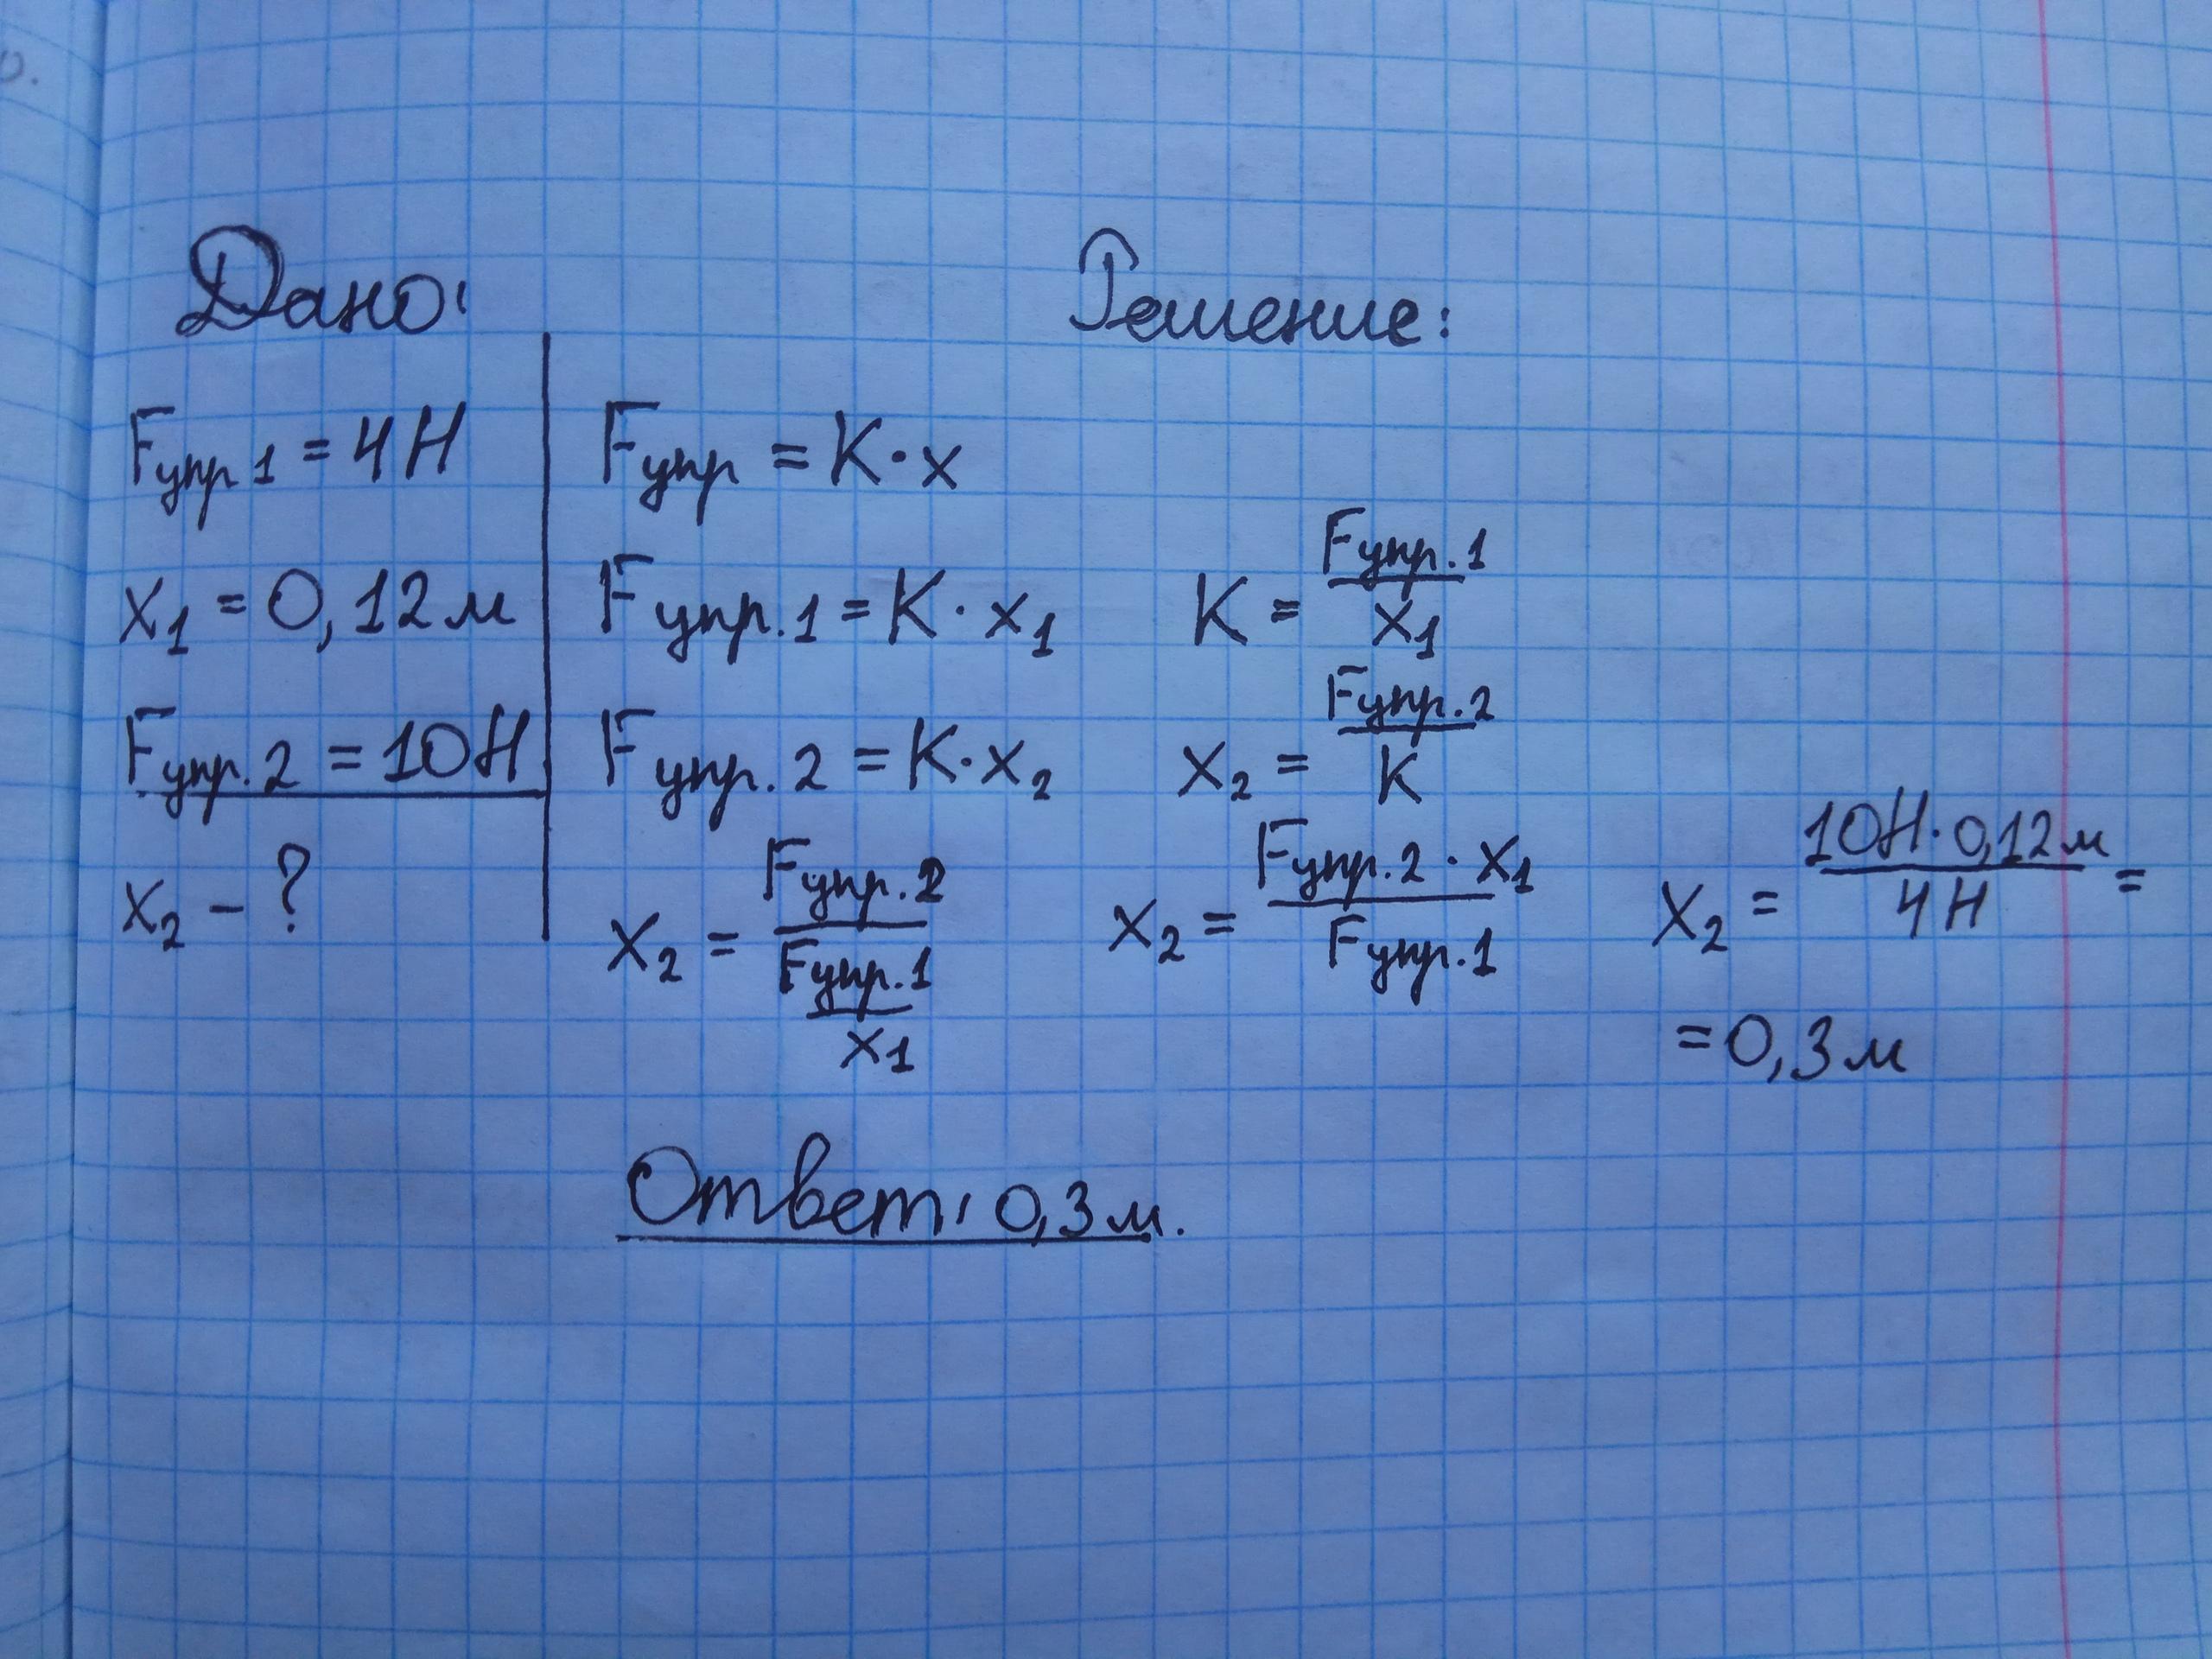 Дано: Решение:
Fупр1 = 4Н
x1 = 0,12м
Fупр.2 = 10Н
x2 - ?
Fупр = K·x
Fупр.1 = K·x1 K = Fупр.1/x1
Fупр.2 = K·x2 x2 = Fупр.2/K
x2 = Fупр.2/(Fупр.1/x1) x2 = Fупр.2·x1/Fупр.1 x2 = 10Н·0,12м/4Н =
= 0,3м
Ответ: 0,3м.